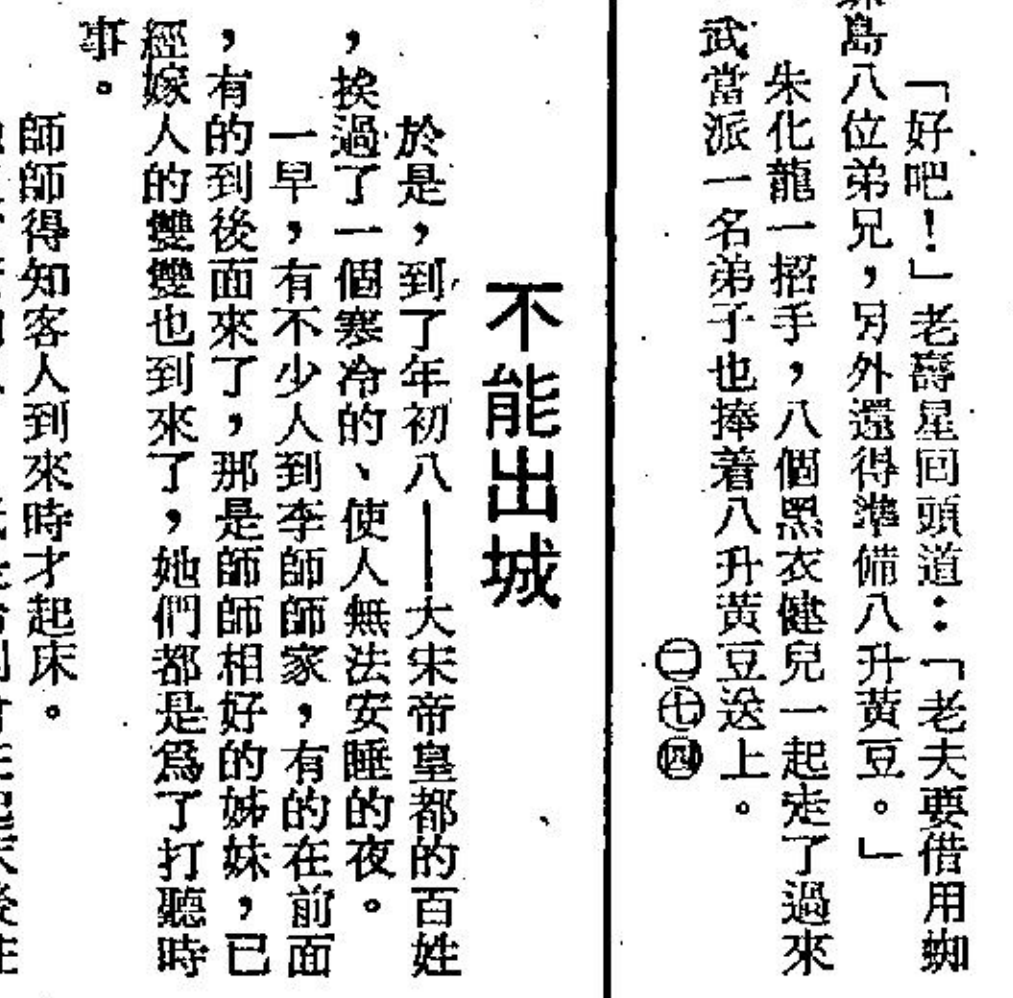 「好吧！」老壽星回頭道：「老夫要借用蜘
島八位弟兄，另外還得準備八升黃豆。」
朱化龍一招手，八個黑衣健兒一起走了過來
武當派一名弟子也捧着八升黃豆送上。
㊁㊆㊃
不能出城
於是，到了年初八——大宋帝皇都的百姓
，挨過了一個寒冷的、使人無法安睡的夜。
一早，有不少人到李師師家，有的在前面
，有的到後面來了，那是師師相好的姊妹，已
經嫁人的雙雙也到來了，她們都是爲了打聽時
事。
師師得知客人到來時才起床。